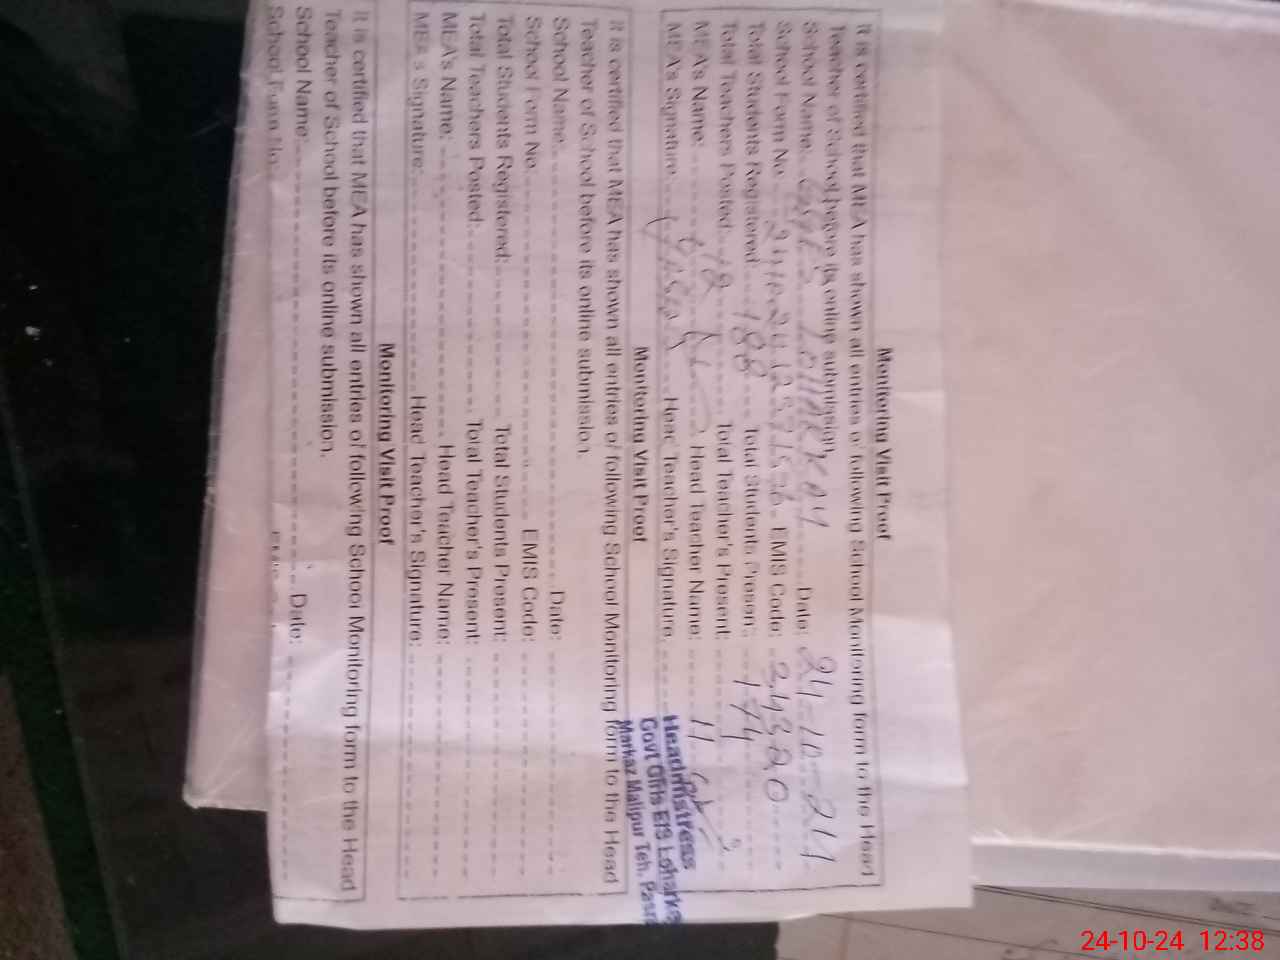 Monitoring Visit Proof
It is certified that MEA has shown all entries of following School Monitoring form to the Head
Teacher of School before its online submission.
School Name: Date: 24-10-24
School Form No. EMIS Code:
Total Students Registered: 188 Total Students Present: 174
Total Teachers Posted: Total Teacher's Present:
MEA's Name: Head Teacher Name:
MEA's Signature: Head Teacher's Signature.
Headmistress
Govt Girls E/S
Markaz Malipur Teh.
Monitoring Visit Proof
It is certified that MEA has shown all entries of following School Monitoring form to the Head
Teacher of School before its online submission.
School Name: Date:
School Form No. EMIS Code:
Total Students Registered: Total Students Present:
Total Teachers Posted: Total Teacher's Present:
MEA's Name: Head Teacher Name:
MEA's Signature: Head Teacher's Signature:
Monitoring Visit Proof
It is certified that MEA has shown all entries of following School Monitoring form to the Head
Teacher of School before its online submission.
School Name: Date:
School Form No.
24-10-24 12:38